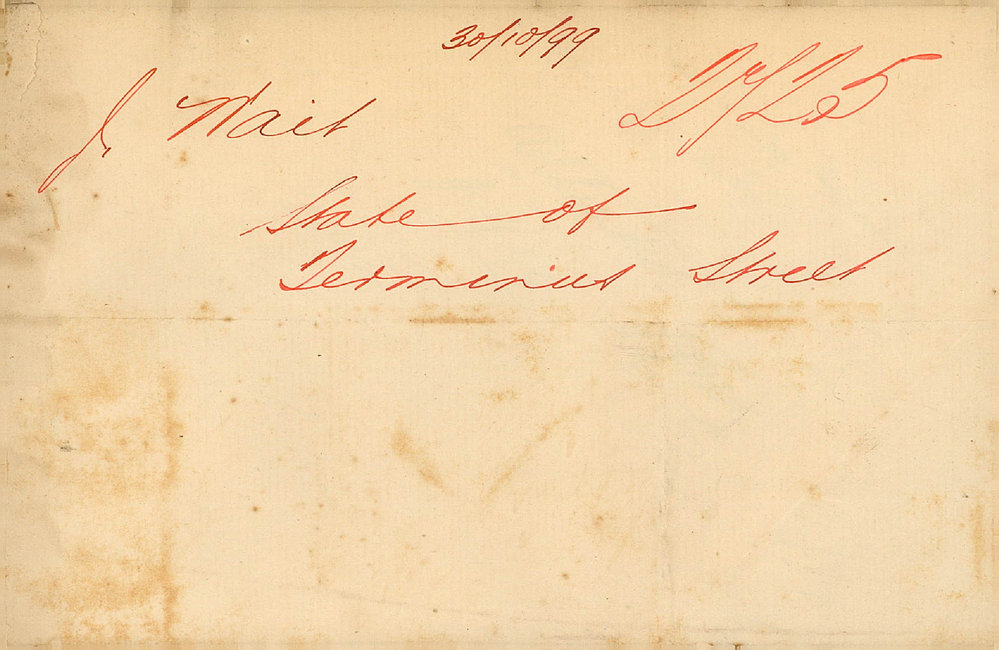 30/10/99
J. Wait 27/25
State of
Terminus Street